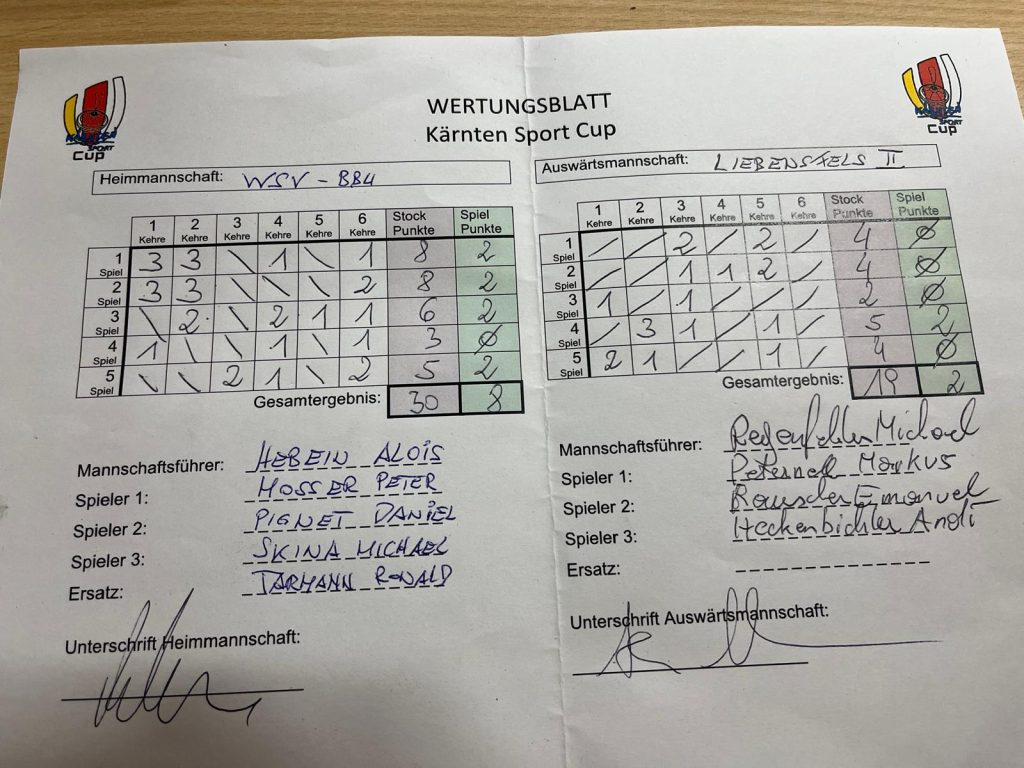 KÄRNTEN SPORT Cup
WERTUNGSBLATT
Kärnten Sport Cup
KÄRNTEN SPORT Cup
Heimmannschaft: WSV - BB4
1 Kehre 2 Kehre 3 Kehre 4 Kehre 5 Kehre 6 Kehre Stock Punkte Spiel Punkte
1 Spiel 3 3 \ 1 \ 1 8 2
2 Spiel 3 3 \ \ \ 2 8 2
3 Spiel \ 2 \ 2 1 1 6 2
4 Spiel 1 \ \ 1 \ 1 3 Ø
5 Spiel \ \ 2 1 \ 2 5 2
Gesamtergebnis: 30 8
Mannschaftsführer: HEBEIN ALOIS
Spieler 1: MOSSER PETER
Spieler 2: PIGNET DANIEL
Spieler 3: SKINA MICHAEL
Ersatz: TARMANN RONALD
Unterschrift Heimmannschaft:
Auswärtsmannschaft: LIEBENSFELS II
1 Kehre 2 Kehre 3 Kehre 4 Kehre 5 Kehre 6 Kehre Stock Punkte Spiel Punkte
1 Spiel / / 2 / 2 / 4 Ø
2 Spiel / / 1 1 2 / 4 Ø
3 Spiel 1 / 1 / / / 2 Ø
4 Spiel / 3 1 / 1 / 5 2
5 Spiel 2 1 / / 1 / 4 Ø
Gesamtergebnis: 19 2
Mannschaftsführer: Michael
Spieler 1: Peternell Markus
Spieler 2: Rauscher Emanuel
Spieler 3: Heckenbichler Andi
Ersatz:
Unterschrift Auswärtsmannschaft: